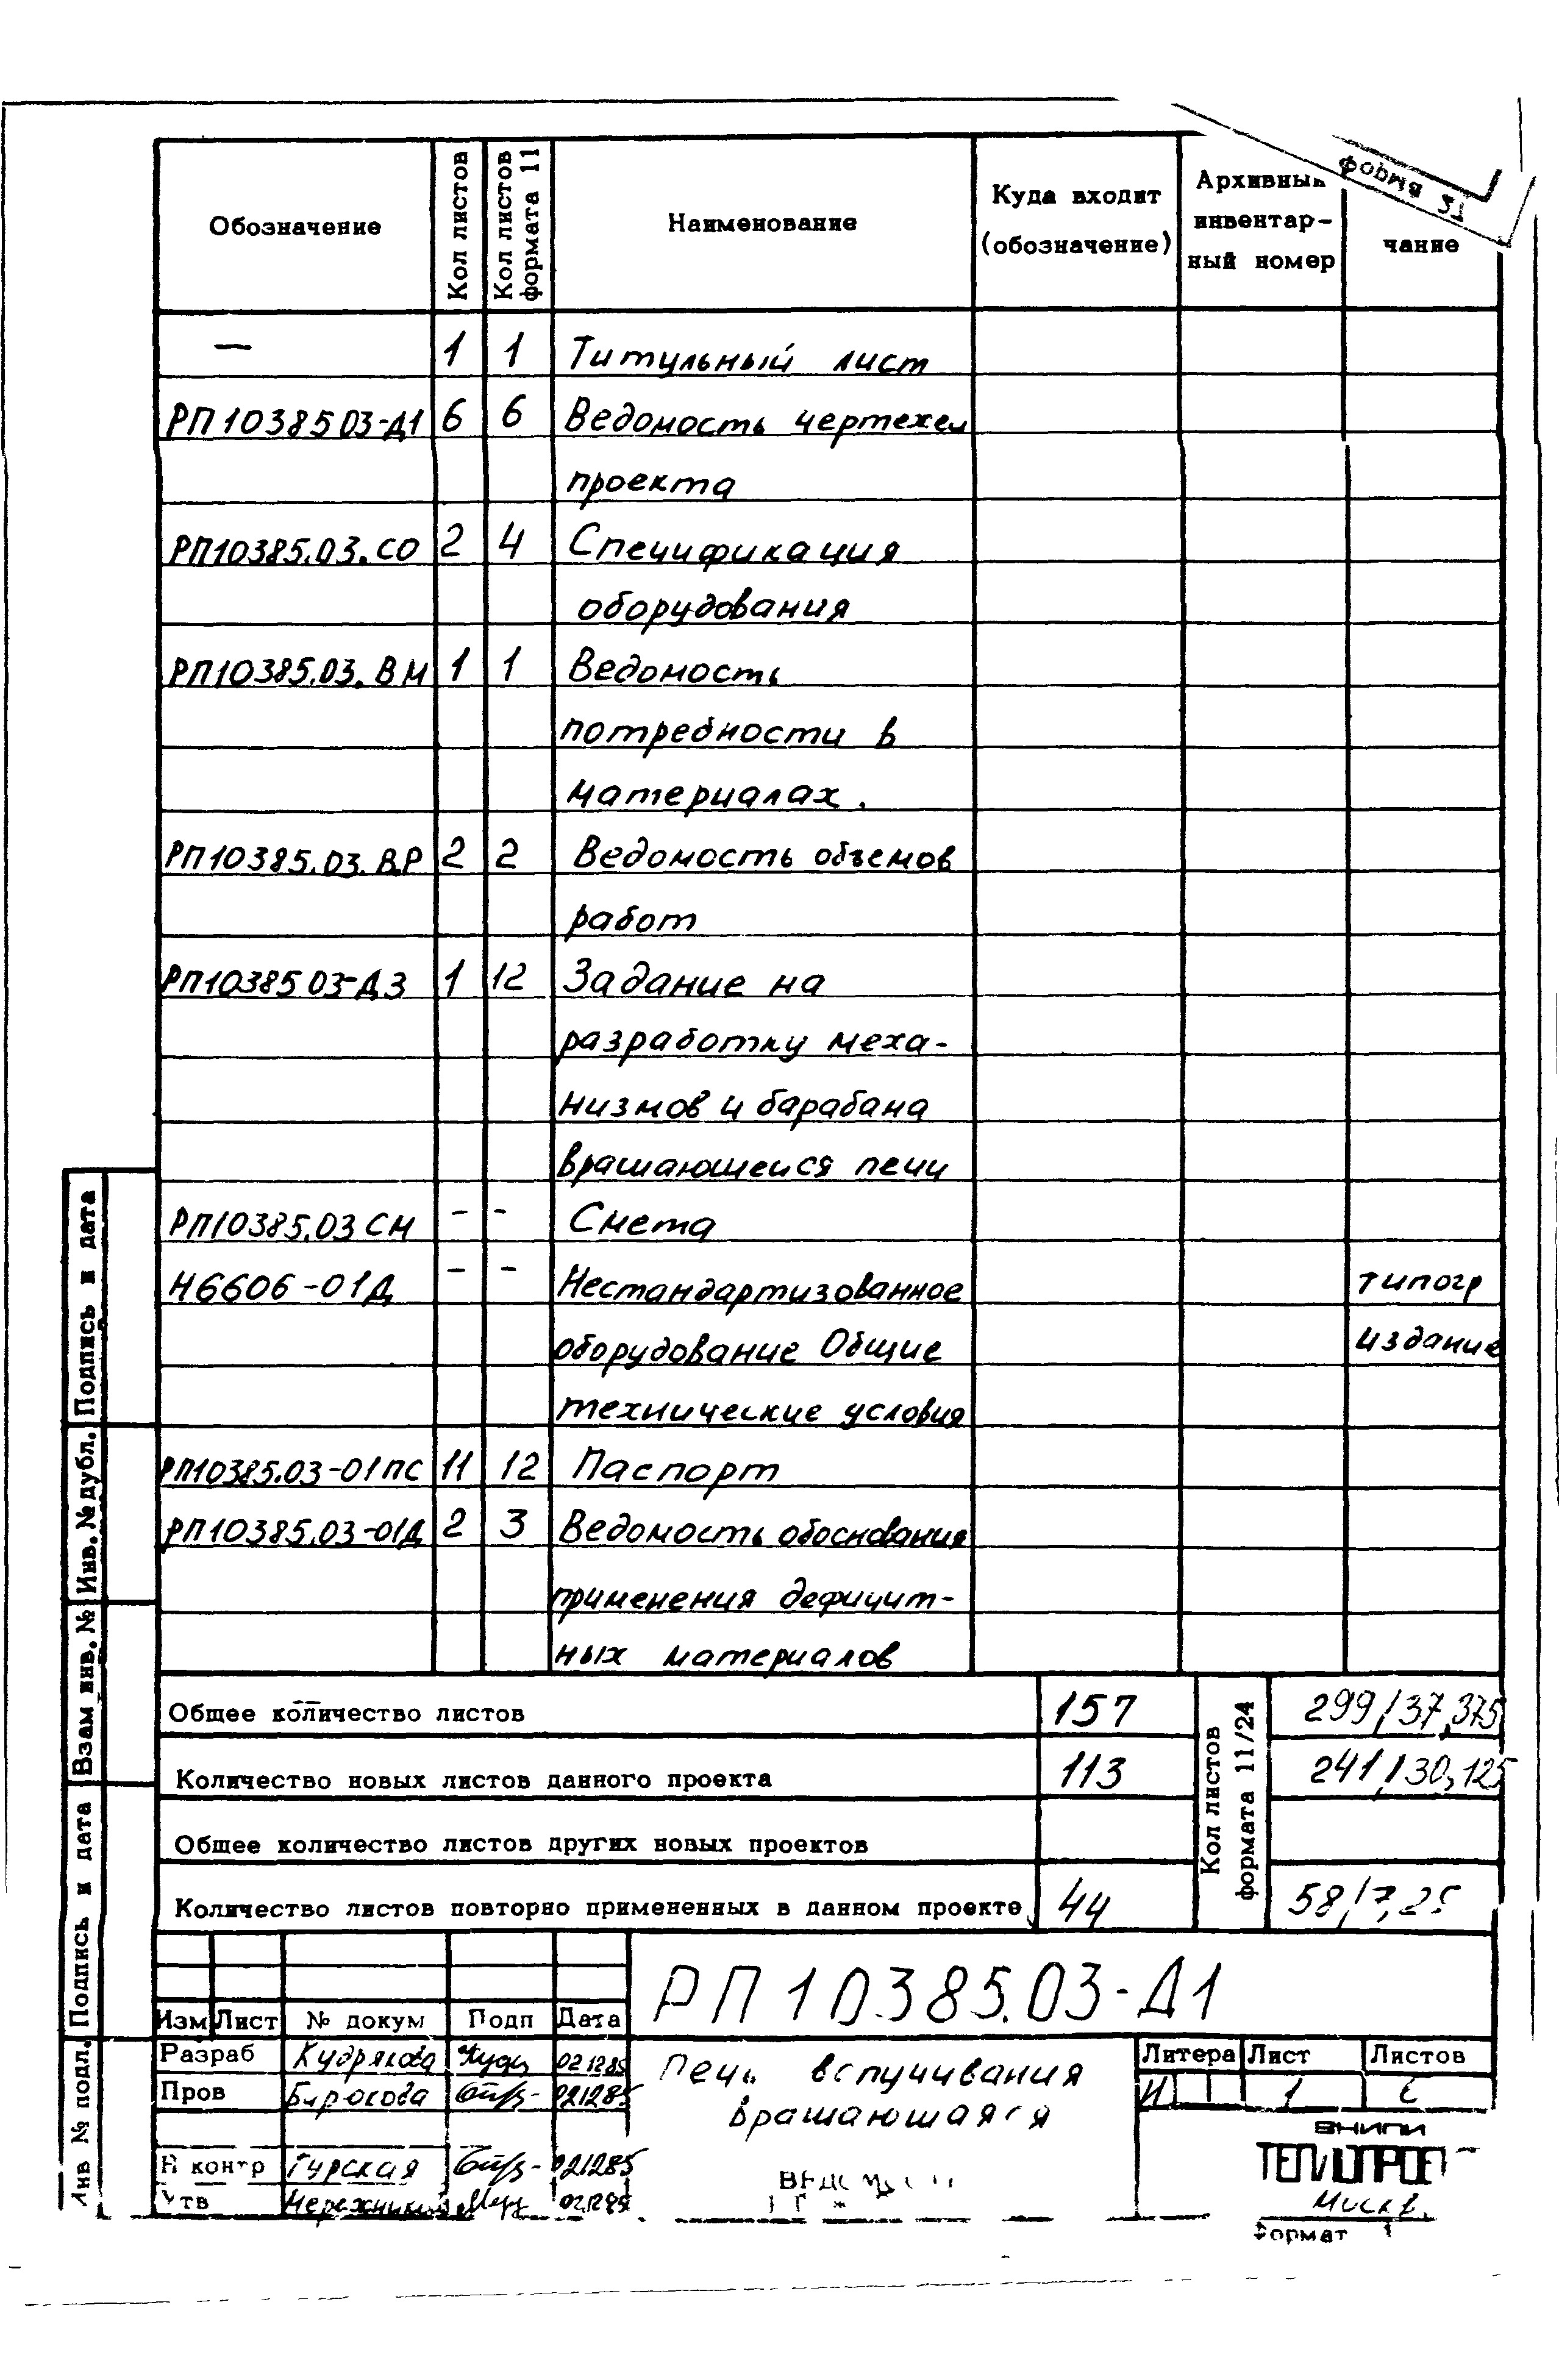 форма 31
Обозначение Кол листов Кол листов формата 11 Наименование Куда входит (обозначение) Архивный инвентар- ный номер чание
— 1 1 Титульный лист
РП10385 03-Д1 6 6 Ведомость чертежей
проекта
РП10385.03.СО 2 4 Спецификация
оборудования
РП10385.03.ВМ 1 1 Ведомость
потребности в
материалах.
РП10385.03.ВР 2 2 Ведомость объемов
работ
РП10385 03-Д3 1 12 Задание на
разработку меха-
низмов и барабана
вращающейся печи
РП10385.03 СМ - - Смета
Н6606-01Д - - Нестандартизованное типогр
оборудование Общие издание
технические условия
РП10385.03-01ПС 11 12 Паспорт
РП10385.03-01Д 2 3 Ведомость обоснования
применения дефицит-
ных материалов
Общее количество листов 157 Кол листов формата 11/24 299/37,375
Количество новых листов данного проекта 113 241/30,125
Общее количество листов других новых проектов
Количество листов повторно примененных в данном проекте 44 58/7,25
РП10385.03-Д1
Изм Лист № докум Подп Дата
Разраб Кудрякова 021285
Пров Бирюсова 021285
Н контр Гурская 021285
Утв 021285
Печь вспучивания
вращающаяся
Литера Лист Листов
И 1
ВНИПИ
ТЕПЛОПРОЕКТ
Москва
Формат
Подпись и дата
Инв. № дубл.
Взам инв. №
Подпись и дата
Инв № подл.